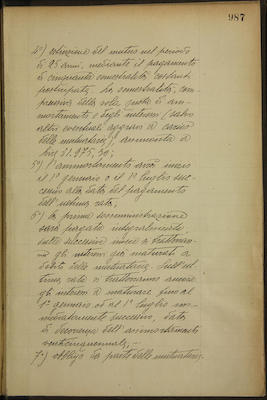 987
4°) estinzione del mutuo nel periodo
di 25 anni, mediante il pagamento
di cinquanta semestralità costanti
posticipate. La semestralità, com-
prensiva della sola quota di am-
mortamento e degli interessi (salvo
altri eventuali aggravi a carico
della mutuataria), ammonta a
51.975,30;
5°) l'ammortamento avrà inizio
il 1° gennaio o il 1° luglio suc-
cessivo alla data del pagamento
dell'ultima rata;
6°) la prima somministrazione
sarà pagata integralmente
sulle successive invece si tratterran-
no gli interessi già maturati a
debito della mutuataria. Sull'ul-
tima rata si tratterranno ancora
gli interessi a maturare fino al
1° gennaio od al 1° luglio im-
mediatamente successivo, data
di decorrenza dell'ammortamento
venticinquennale;
7°) obbligo da parte della mutuataria